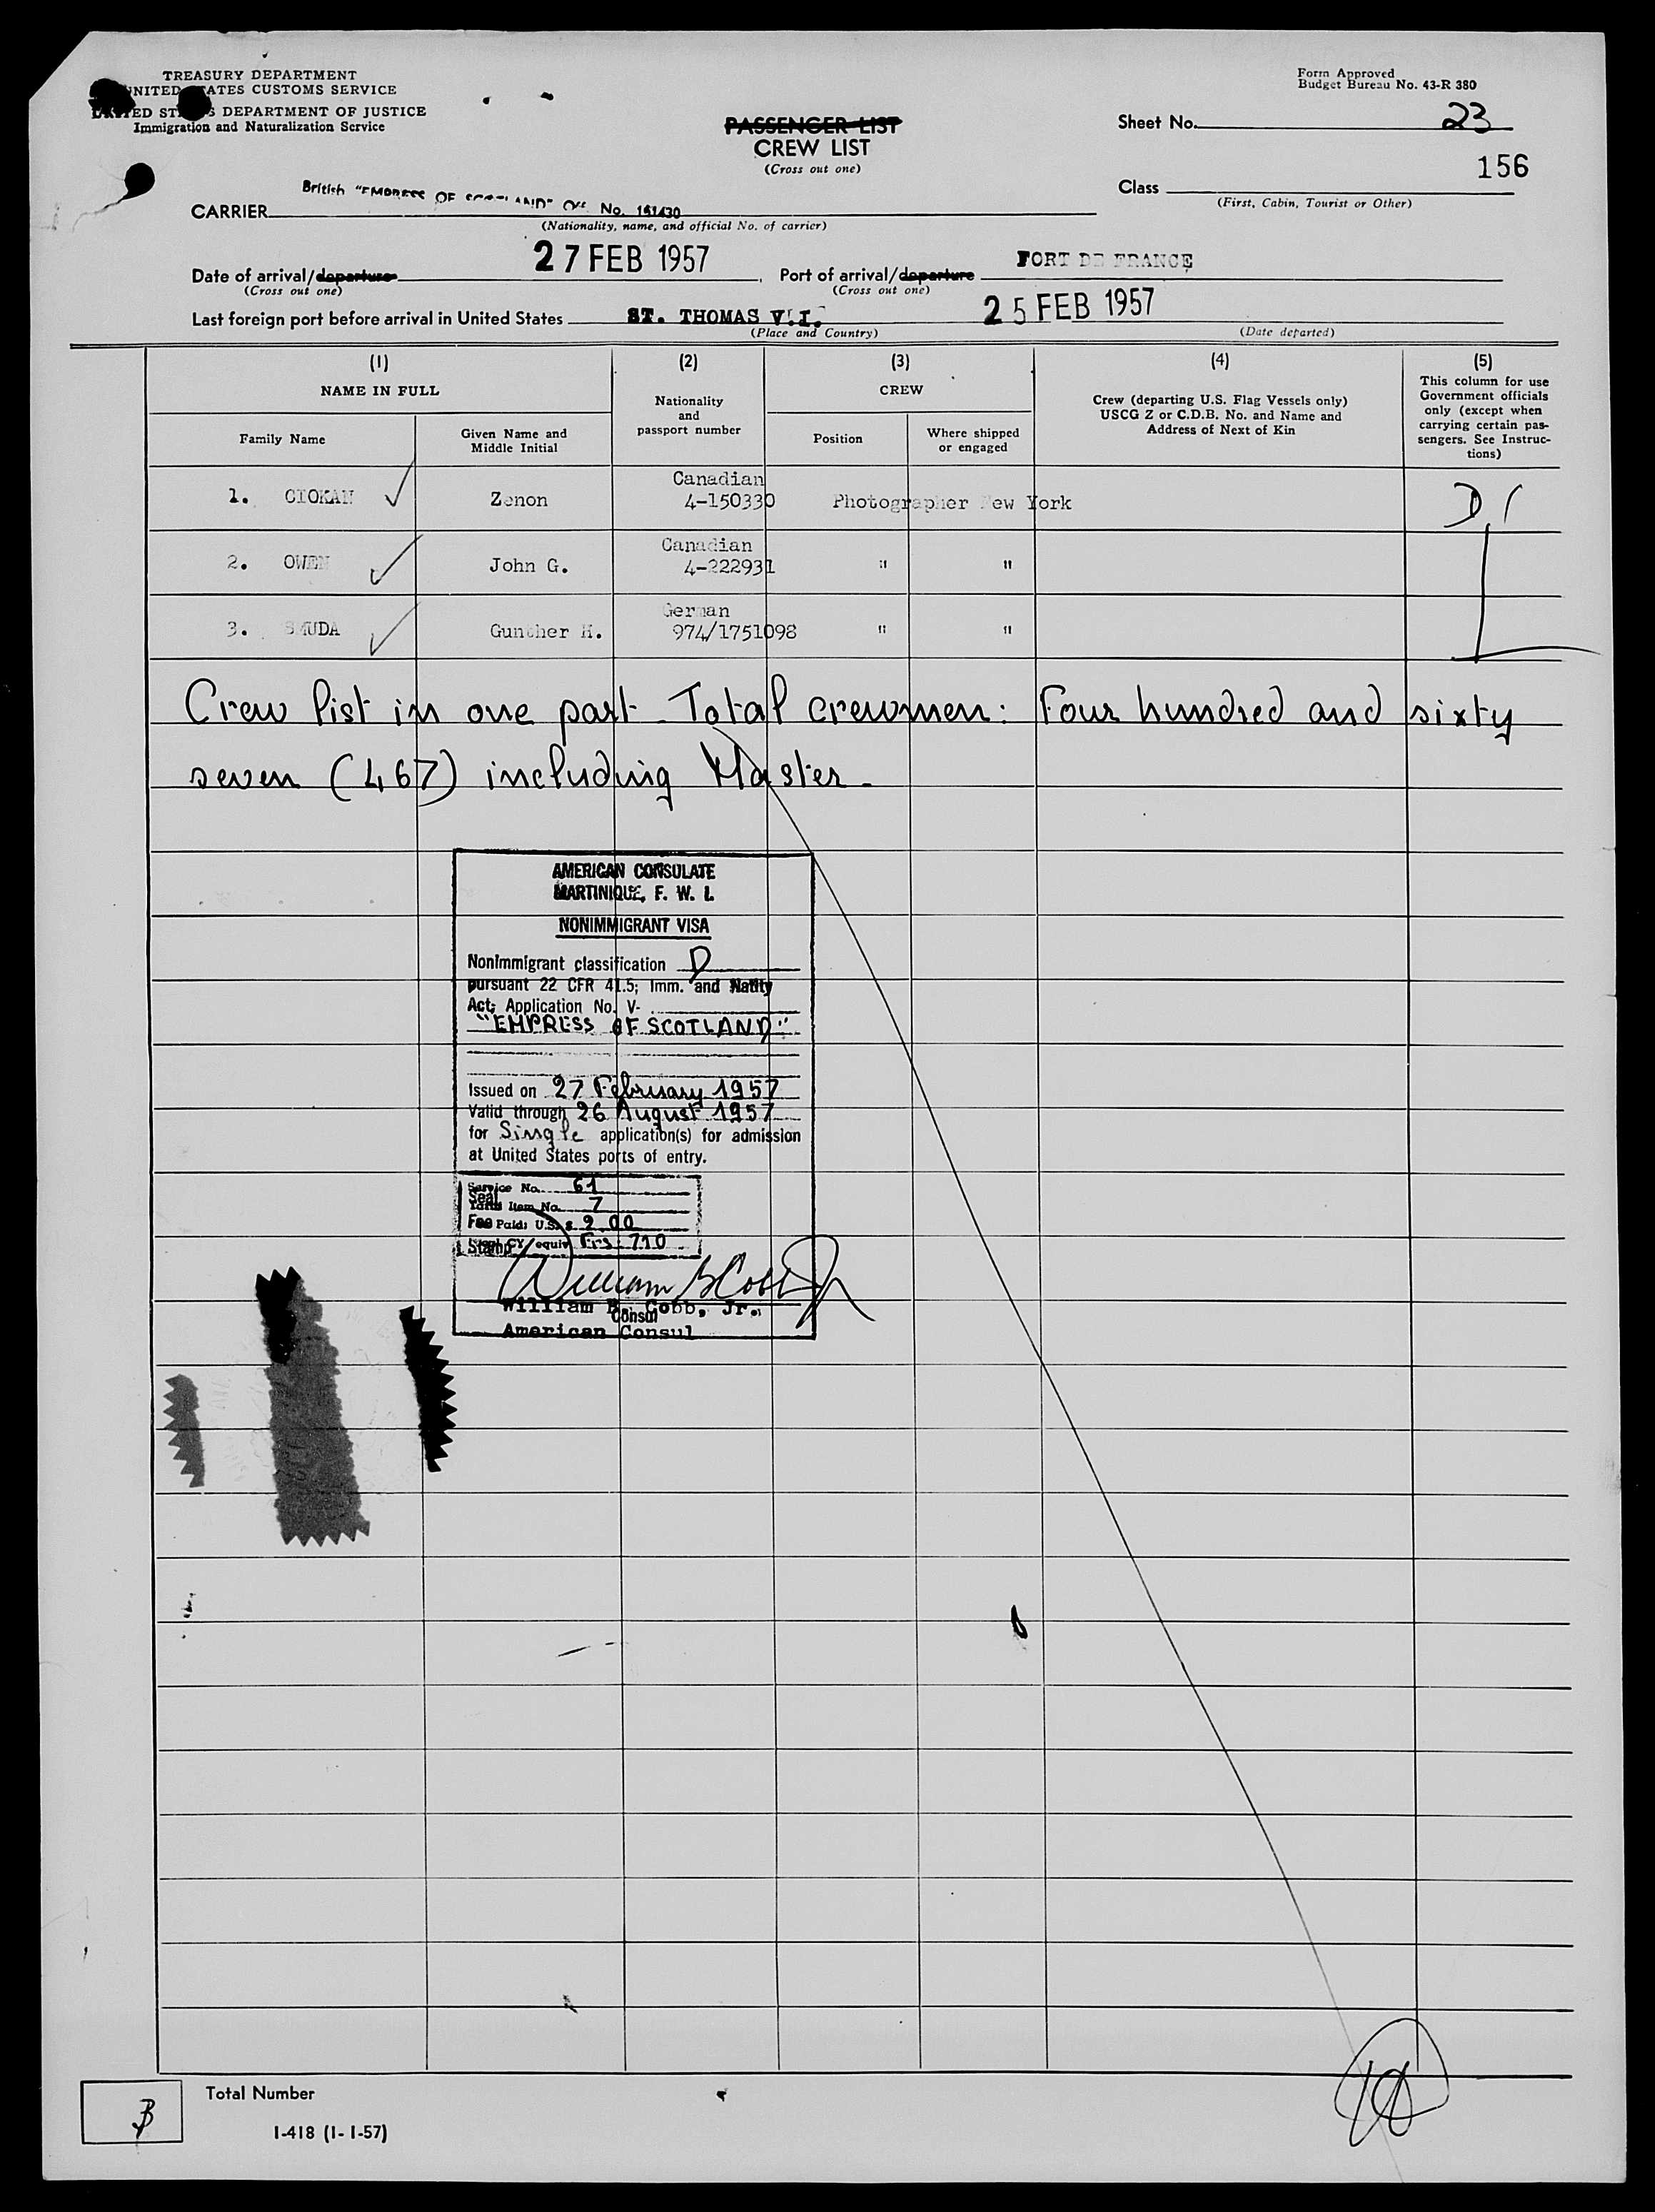 TREASURY DEPARTMENT
UNITED STATES CUSTOMS SERVICE
UNITED STATES DEPARTMENT OF JUSTICE
Immigration and Naturalization Service
Form Approved
Budget Bureau No. 43-R 380
PASSENGER LIST
CREW LIST
(Cross out one)
Sheet No. 23
156
Class
(First, Cabin, Tourist or Other)
CARRIER British "EMPRESS OF SCOTLAND" Off. No. 161430
(Nationality, name, and official No. of carrier)
Date of arrival/departure 27 FEB 1957 Port of arrival/departure FORT DE FRANCE
(Cross out one) (Cross out one)
Last foreign port before arrival in United States ST. THOMAS V.I. 25 FEB 1957
(Place and Country) (Date departed)
(1) (2) (3) (4) (5)
NAME IN FULL
Family Name
Given Name and
Middle Initial
Nationality
and
passport number
CREW
Position
Where shipped
or engaged
Crew (departing U.S. Flag Vessels only)
USCG Z or C.D.B. No. and Name and
Address of Next of Kin
This column for use
Government officials
only (except when
carrying certain pas-
sengers. See Instruc-
tions)
Canadian
1. CIOKAN Zenon 4-150330 Photographer New York D1
Canadian
2. OWEN John G. 4-222931 " "
German
3. SMUDA Gunther H. 974/1751098 " "
Crew list in one part - Total crewmen: Four hundred and sixty
seven (467) including Master -
AMERICAN CONSULATE
MARTINIQUE, F. W. I.
NONIMMIGRANT VISA
Nonimmigrant classification D
pursuant 22 CFR 41.5; Imm. and Natlty
Act; Application No. V-
"EMPRESS OF SCOTLAND"
Issued on 27 February 1957
Valid through 26 August 1957
for Single application(s) for admission
at United States ports of entry.
Service No. 61
Seal
Tariff Item No. 7
Fee Paid: U.S. $ 2.00
Local CY equiv Frs 710
Stamp
William B Cobb Jr
William B. Cobb, Jr.
Consul
American Consul
Total Number
I-418 (1-1-57)